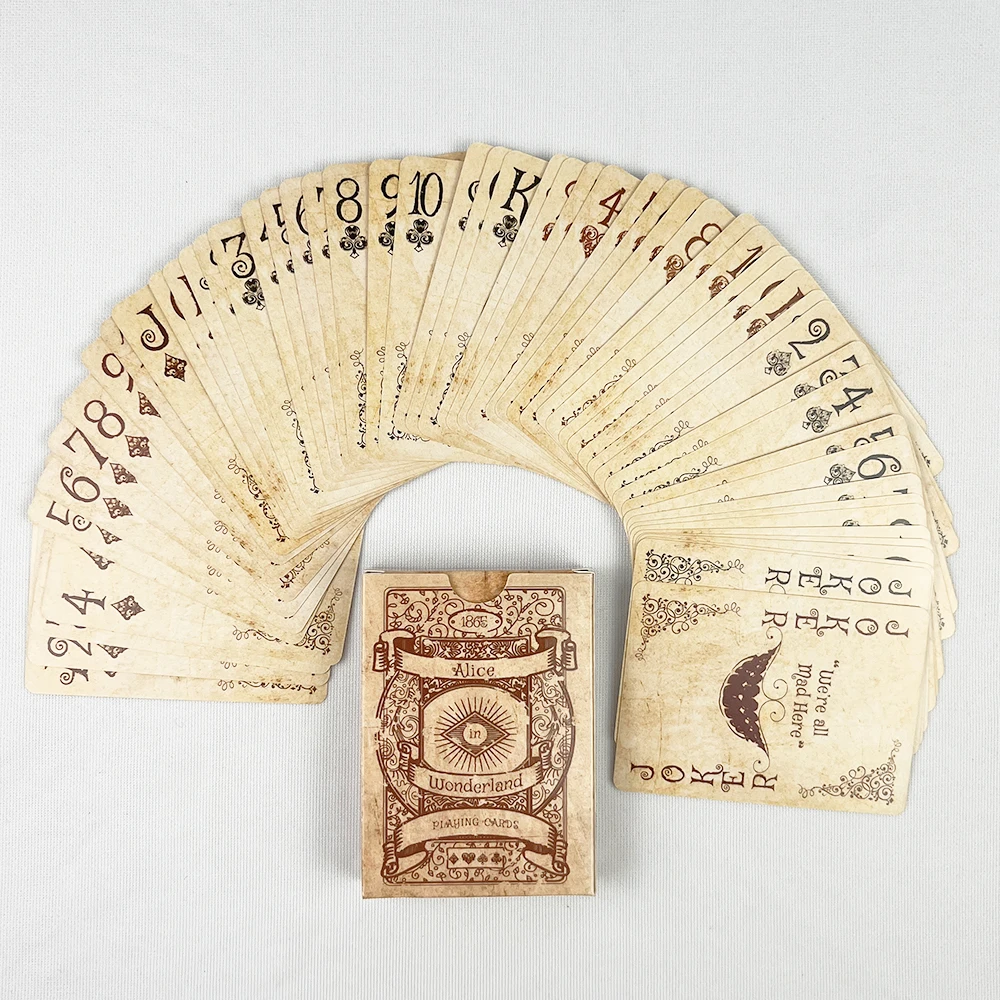 2
4
5
6
7
8
9
J
3
8
9
10
K
4
8
2
4
5
6
JOKER
JOKER
"We're all
Mad Here"
JOKER
1865
Alice
in
Wonderland
PLAYING CARDS